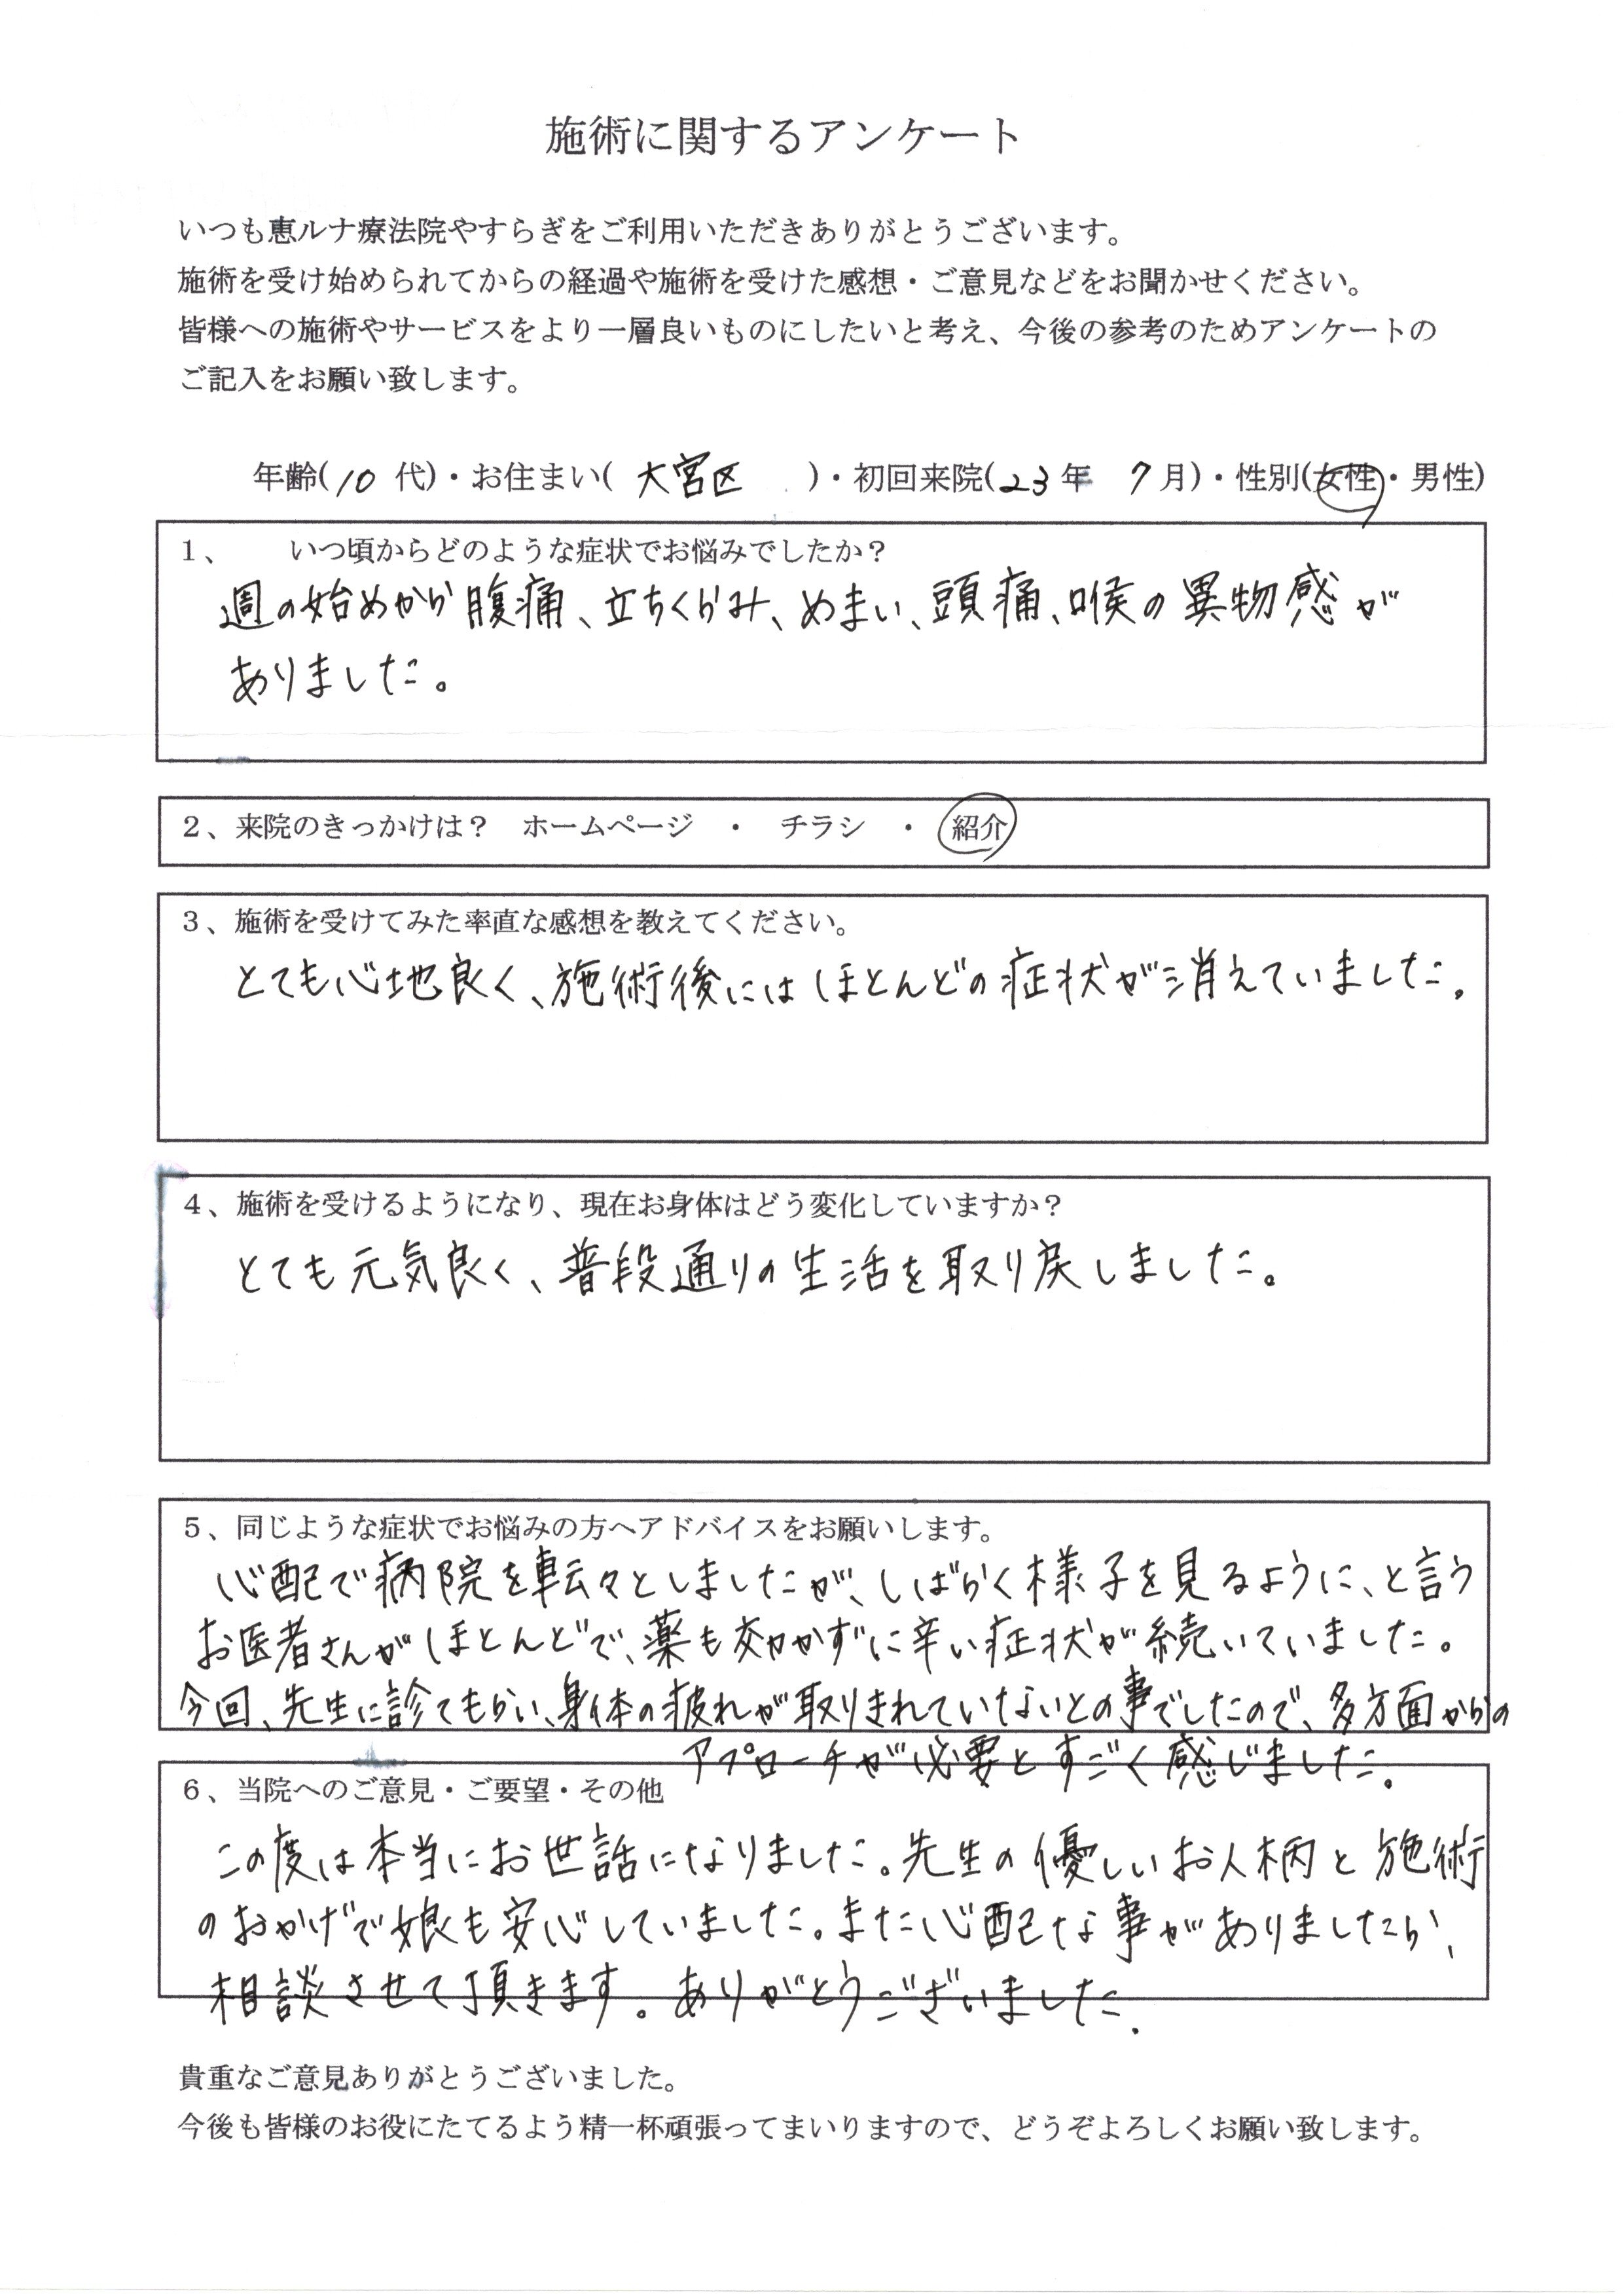 施術に関するアンケート
いつも恵ルナ療法院やすらぎをご利用いただきありがとうございます。
施術を受け始められてからの経過や施術を受けた感想・ご意見などをお聞かせください。
皆様への施術やサービスをより一層良いものにしたいと考え、今後の参考のためアンケートの
ご記入をお願い致します。
年齢(10 代)・お住まい( 大宮区 )・初回来院(23年 7月)・性別(女性・男性)
1、 いつ頃からどのような症状でお悩みでしたか?
週の始めから腹痛、立ちくらみ、めまい、頭痛、喉の異物感が
ありました。
2、来院のきっかけは? ホームページ ・ チラシ ・ 紹介
3、施術を受けてみた率直な感想を教えてください。
とても心地良く、施術後にはほとんどの症状が消えていました。
4、施術を受けるようになり、現在お身体はどう変化していますか?
とても元気良く、普段通りの生活を取り戻しました。
5、同じような症状でお悩みの方へアドバイスをお願いします。
心配で病院を転々としましたが、しばらく様子を見るように、と言う
お医者さんがほとんどで、薬も効かずに辛い症状が続いていました。
今回、先生に診てもらい、身体の疲れが取りきれていないとの事でしたので、多方面からの
アプローチが必要とすごく感じました。
6、当院へのご意見・ご要望・その他
この度は本当にお世話になりました。先生の優しいお人柄と施術
のおかげで娘も安心していました。また心配な事がありましたら、
相談させて頂きます。ありがとうございました.
貴重なご意見ありがとうございました。
今後も皆様のお役にたてるよう精一杯頑張ってまいりますので、どうぞよろしくお願い致します。